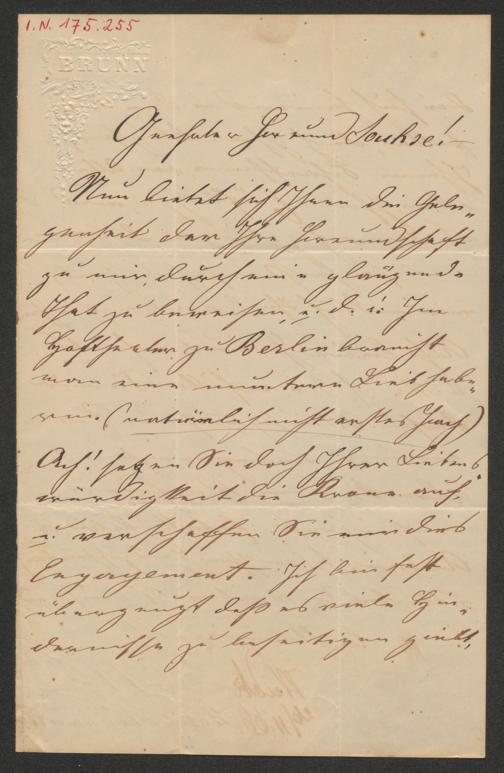 I.N. 175.255
BRÜNN
Geehrter Freund Sachse! –
Nun bietet sich Ihnen die Gele„
genheit der Ihre Freundschaft
zu mir, durch eine glänzende
That zu beweisen, u. d. i: Im
Hoftheater zu Berlin braucht
man eine muntere Liebhabe„
rin. (natürlich nicht erstes Fach)
Ach! setzen Sie doch Ihrer Liebens„
würdigkeit die Krone auf,
u. verschaffen Sie mir dies
Engagement. Ich bin fest
überzeugt daß es viele Hin„
dernisse zu beseitigen giebt,